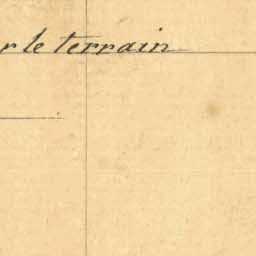 r le terrain